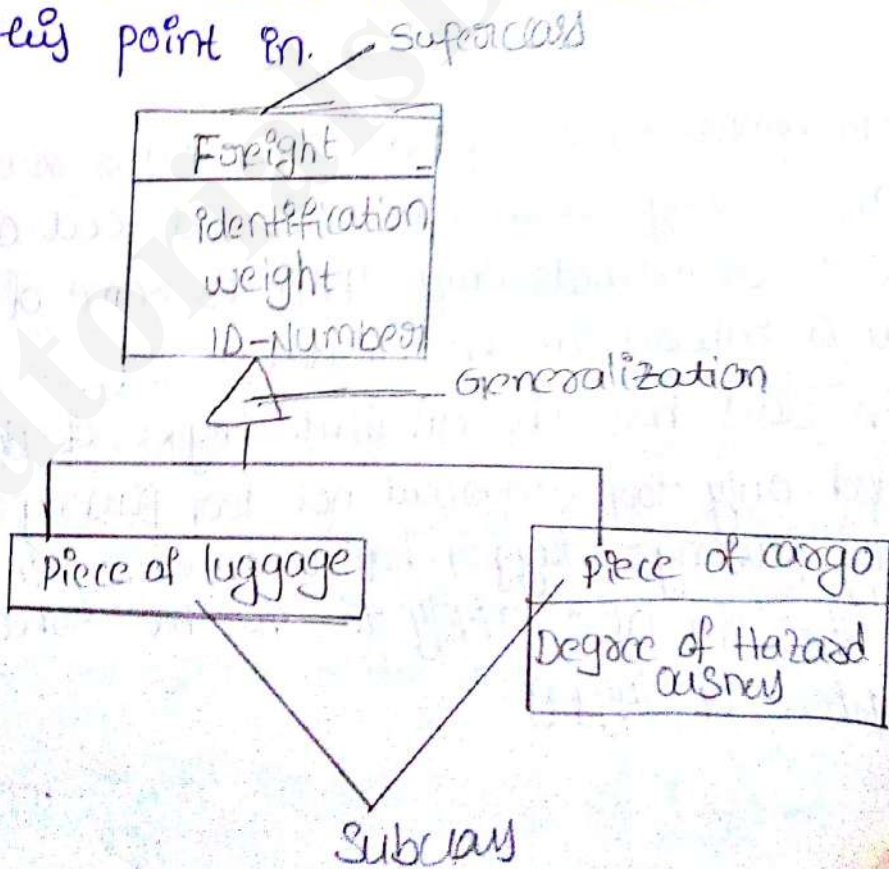 point in.
Superclass
Freight
identification
weight
ID-Number
Generalization
Piece of luggage
piece of cargo
Degree of Hazard
ousness
Subclass